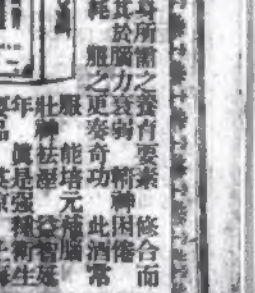 身所需之養育要素　修合而
其於腦力衰弱　精神困倦
服之更奏奇功　此酒常
服　能培元補腦
壯神祛濕　益智延
年　真是強種衛生